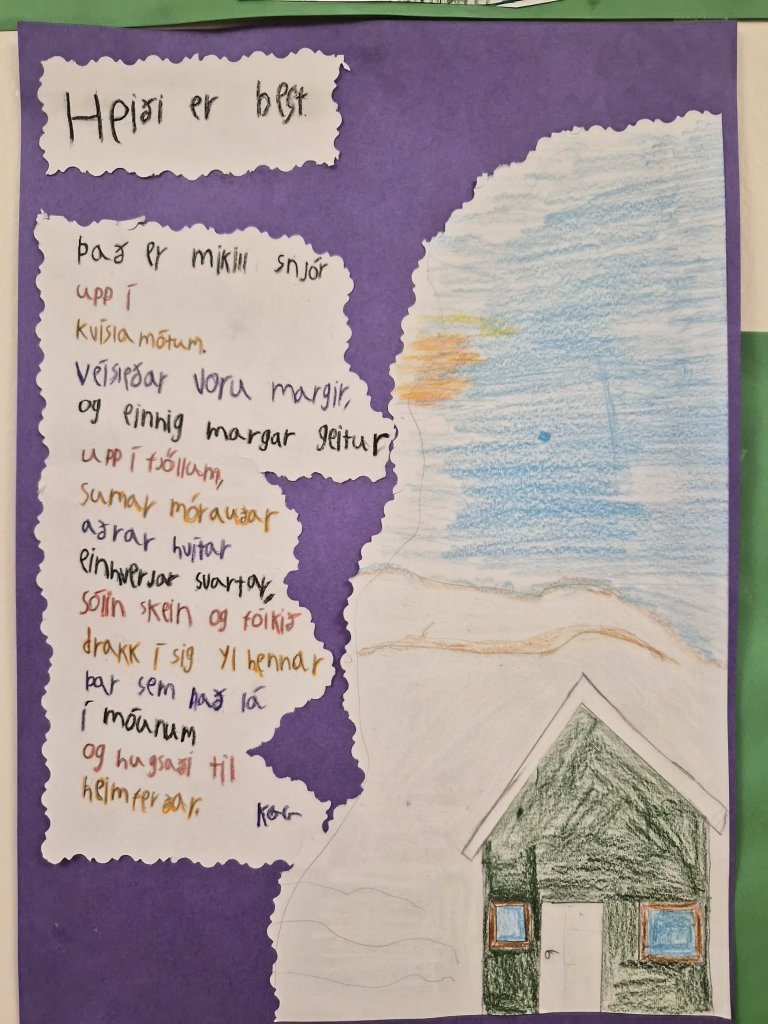 Heiði er best
það er mikill snjór
upp í
kvísla mótum.
vélsleðar voru margir,
og einnig margar geitur
upp í fjöllum,
sumar mórauðar
aðrar hvítar
einhverjar svartar,
sólin skein og fólkið
drakk í sig yl hennar
þar sem það lá
í móunum
og hugsaði til
heimferðar.